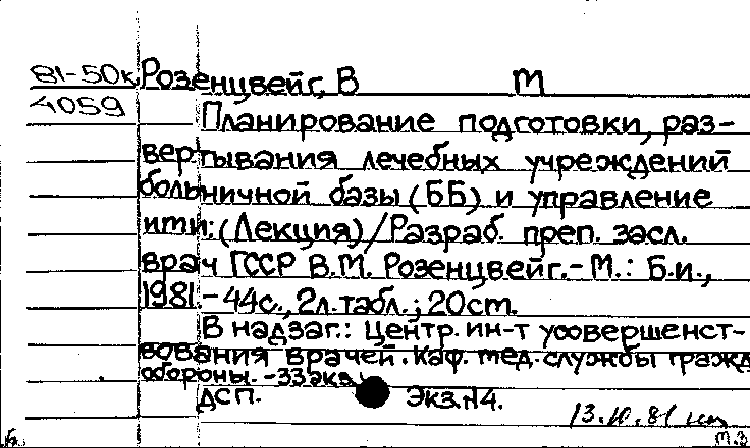 81-50к Розенцвейг, В М
4059
Планирование подготовки, раз-
вертывания лечебных учреждений
больничной базы (ББ) и управление
ими: (Лекция)/Разраб. преп. засл.
врач ГССР В.М. Розенцвейг.-М.: Б.и.,
1981.-44с., 2л.табл.; 20см.
В надзаг.: Центр. ин-т усовершенст-
вования врачей. Каф. мед. службы гражд
обороны. -33экз.
ДСП. Экз.N4.
13.10.81
М.З